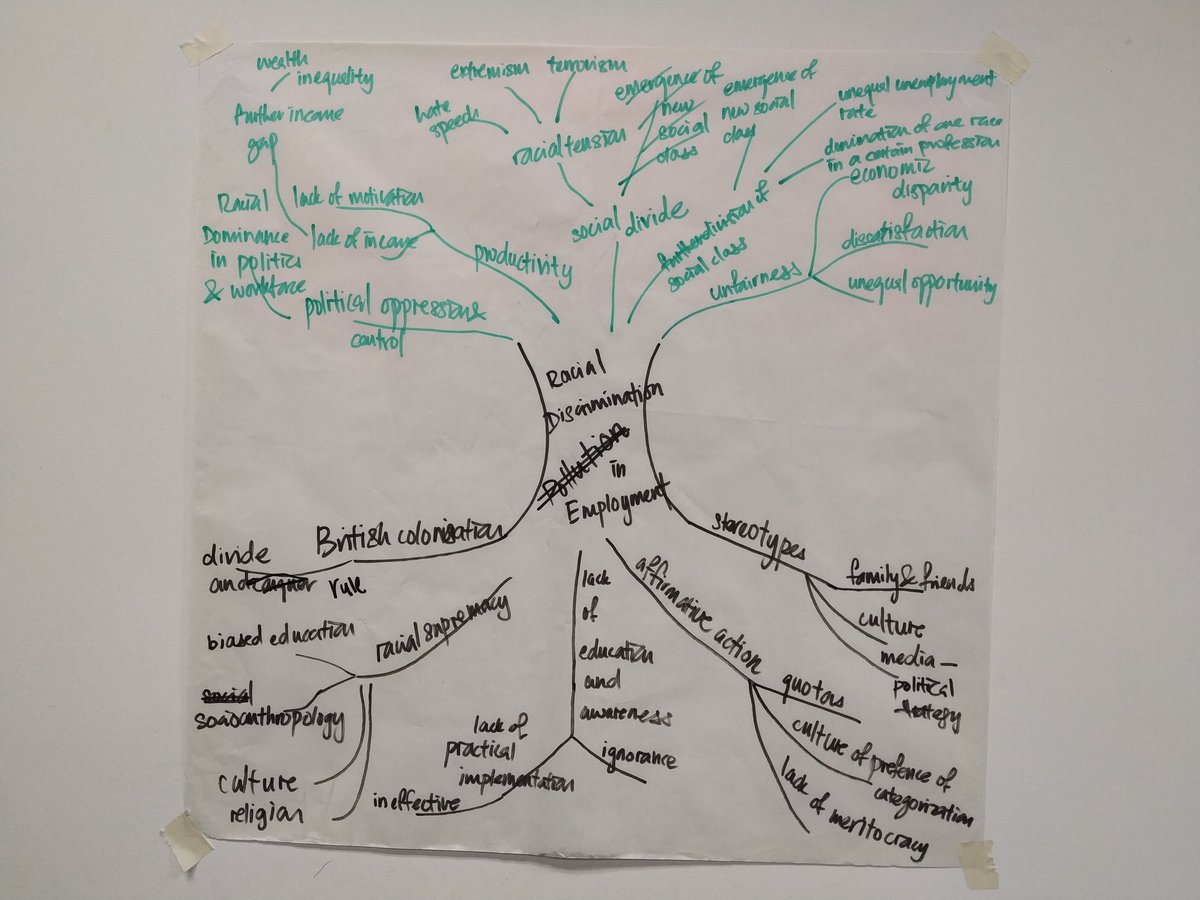 wealth
inequality
further income
gap
Racial
Dominance
in politics
& workforce
lack of motivation
lack of income
productivity
political oppression &
control
extremism
terrorism
hate
speech
racial tension
emergence of
new
social
class
emergence of
new social
class
social divide
further division of
social class
unequal unemployment
rate
domination of one race
in a certain profession
economic
disparity
dissatisfaction
unequal opportunity
unfairness
Racial
Discrimination
Pollution
in
Employment
British colonisation
divide
and conquer rule
racial supremacy
biased education
social
socioanthropology
culture
religion
lack
of
education
and
awareness
ignorance
lack of
practical
implementation
ineffective
affirmative action
quotas
culture of prefence of
categorization
lack of meritocracy
stereotypes
family & friends
culture
media –
political
strategy